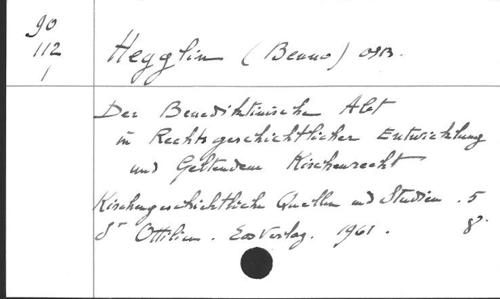 90
112
1
Hegglin (Benno) OSB.
Der Benediktinische Abt
in Rechtsgeschichtlicher Entwicklung
und Geltendem Kirchenrecht
Kirchengeschichtliche Quellen und Studien . 5
St Ottilien . Eos Verlag . 1961 . 8°